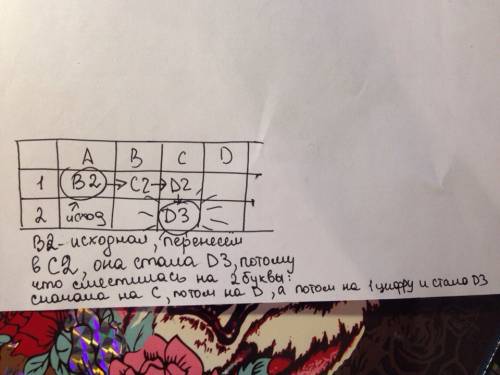 A B C D
1 B2 → C2 → D2
2 исход D3
B2 - исходная, перенесём
в C2, она стала D3, потому
что сместилась на 2 буквы:
сначала на C, потом на D, а потом на 1 цифру и стала D3